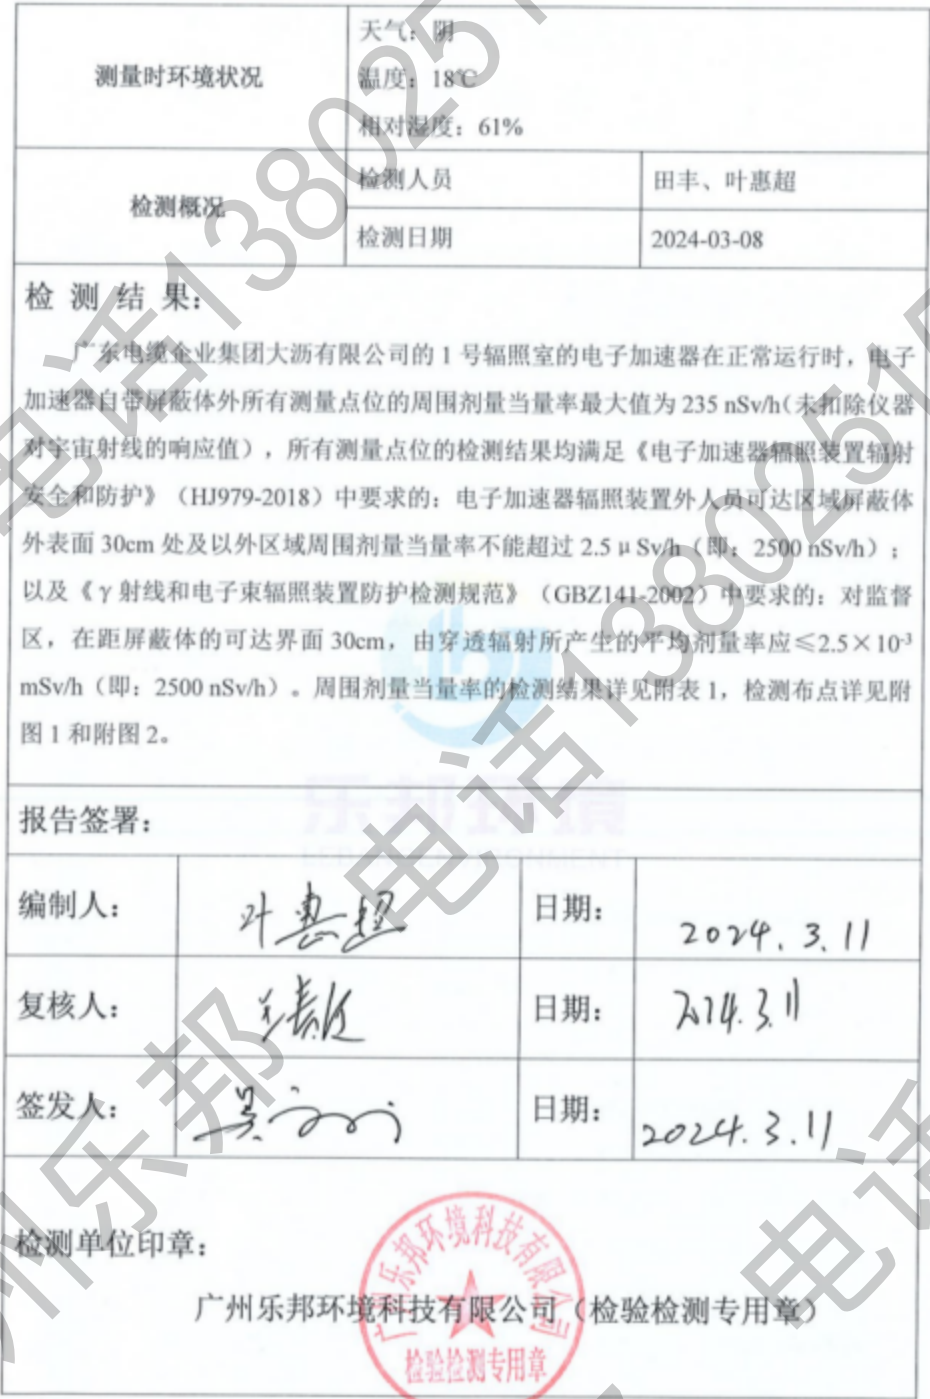 测量时环境状况
天气：阴
温度：18℃
相对湿度：61%
检测概况
检测人员
田丰、叶惠超
检测日期
2024-03-08
检 测 结 果：
广东电缆企业集团大沥有限公司的 1 号辐照室的电子加速器在正常运行时，电子
加速器自带屏蔽体外所有测量点位的周围剂量当量率最大值为 235 nSv/h（未扣除仪器
对宇宙射线的响应值），所有测量点位的检测结果均满足《电子加速器辐照装置辐射
安全和防护》（HJ979-2018）中要求的：电子加速器辐照装置外人员可达区域屏蔽体
外表面 30cm 处及以外区域周围剂量当量率不能超过 2.5 μ Sv/h（即：2500 nSv/h）；
以及《γ 射线和电子束辐照装置防护检测规范》（GBZ141-2002）中要求的：对监督
区，在距屏蔽体的可达界面 30cm，由穿透辐射所产生的平均剂量率应≤2.5×10⁻³
mSv/h（即：2500 nSv/h）。周围剂量当量率的检测结果详见附表 1，检测布点详见附
图 1 和附图 2。
乐邦环境
报告签署：
编制人：
叶惠超
日期：
2024.3.11
复核人：
日期：
2024.3.11
签发人：
日期：
2024.3.11
检测单位印章：
广州乐邦环境科技有限公司（检验检测专用章）
广州乐邦环境科技有限公司
检验检测专用章
电话13802515
电话13802515
州乐邦
电话